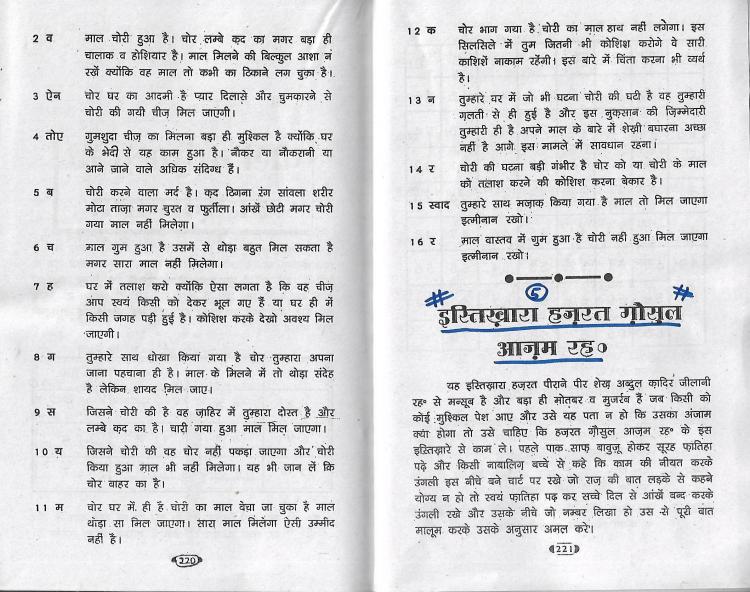 2 व माल चोरी हुआ है। चोर लम्बे क़द का मगर बड़ा ही
चालाक व होशियार है। माल मिलने की बिल्कुल आशा न
रखें क्योंकि वह माल तो कभी का ठिकाने लग चुका है।
3 ऐन चोर घर का आदमी है प्यार दिलासे और चुमकारने से
चोरी की गयी चीज़ मिल जाएगी।
4 तोए गुमशुदा चीज़ का मिलना बड़ा ही मुश्किल है क्योंकि घर
के भेदी से यह काम हुआ है। नौकर या नौकरानी या
आने जाने वाले अधिक संदिग्ध हैं।
5 ब चोरी करने वाला मर्द है। क़द ठिगना रंग सांवला शरीर
मोटा ताज़ा मगर चुस्त व फुर्तीला। आंखें छोटी मगर चोरी
गया माल नहीं मिलेगा।
6 च माल गुम हुआ है उसमें से थोड़ा बहुत मिल सकता है
मगर सारा माल नहीं मिलेगा।
7 ह घर में तलाश करो क्योंकि ऐसा लगता है कि वह चीज़
आप स्वयं किसी को देकर भूल गए हैं या घर ही में
किसी जगह पड़ी हुई है। कोशिश करके देखो अवश्य मिल
जाएगी।
8 ग तुम्हारे साथ धोखा किया गया है चोर तुम्हारा अपना
जाना पहचाना ही है। माल के मिलने में तो थोड़ा संदेह
है लेकिन शायद मिल जाए।
9 स जिसने चोरी की है वह ज़ाहिर में तुम्हारा दोस्त है और
लम्बे क़द का है। चारी गया हुआ माल मिल जाएगा।
10 य जिसने चोरी की वह चोर नहीं पकड़ा जाएगा और चोरी
किया हुआ माल भी नहीं मिलेगा। यह भी जान लें कि
चोर बाहर का है।
11 म चोर घर में ही है चोरी का माल बेचा जा चुका है माल
थोड़ा सा मिल जाएगा। सारा माल मिलेगा ऐसी उम्मीद
नहीं है।
220
12 क चोर भाग गया है चोरी का माल हाथ नहीं लगेगा। इस
सिलसिले में तुम जितनी भी कोशिश करोगे वे सारी
काशिशें नाकाम रहेंगी। इस बारे में चिंता करना भी व्यर्थ
है।
13 न तुम्हारे घर में जो भी घटना चोरी की घटी है वह तुम्हारी
ग़लती से ही हुई है और इस नुक़सान की ज़िम्मेदारी
तुम्हारी ही है अपने माल के बारे में शेख़ी बघारना अच्छा
नहीं है आगे इस मामले में सावधान रहना।
14 र चोरी की घटना बड़ी गंभीर है चोर को या चोरी के माल
को तलाश करने की कोशिश करना बेकार है।
15 स्वाद तुम्हारे साथ मज़ाक़ किया गया है माल तो मिल जाएगा
इत्मीनान रखो।
16 र माल वास्तव में गुम हुआ है चोरी नहीं हुआ मिल जाएगा
इत्मीनान रखो।
# 5 #
इस्तिख़ारा हज़रत ग़ौसुल
आज़म रह०
यह इस्तिख़ारा हज़रत पीराने पीर शेख़ अब्दुल क़ादिर जीलानी
रह० से मन्सूब है और बड़ा ही मोतबर व मुजर्रब है जब किसी को
कोई मुश्किल पेश आए और उसे यह पता न हो कि उसका अंजाम
क्या होगा तो उसे चाहिए कि हज़रत ग़ौसुल आज़म रह० के इस
इस्तिख़ारे से काम ले। पहले पाक साफ़ बावुज़ू होकर सूरह फ़ातिहा
पढ़े और किसी नाबालिग़ बच्चे से कहे कि काम की नीयत करके
उंगली इस नीचे बने चार्ट पर रखे जो राज़ की बात लड़के से कहने
योग्य न हो तो स्वयं फ़ातिहा पढ़ कर सच्चे दिल से आंखें बन्द करके
उंगली रखे और उसके नीचे जो नम्बर लिखा हो उस से पूरी बात
मालूम करके उसके अनुसार अमल करे।
221